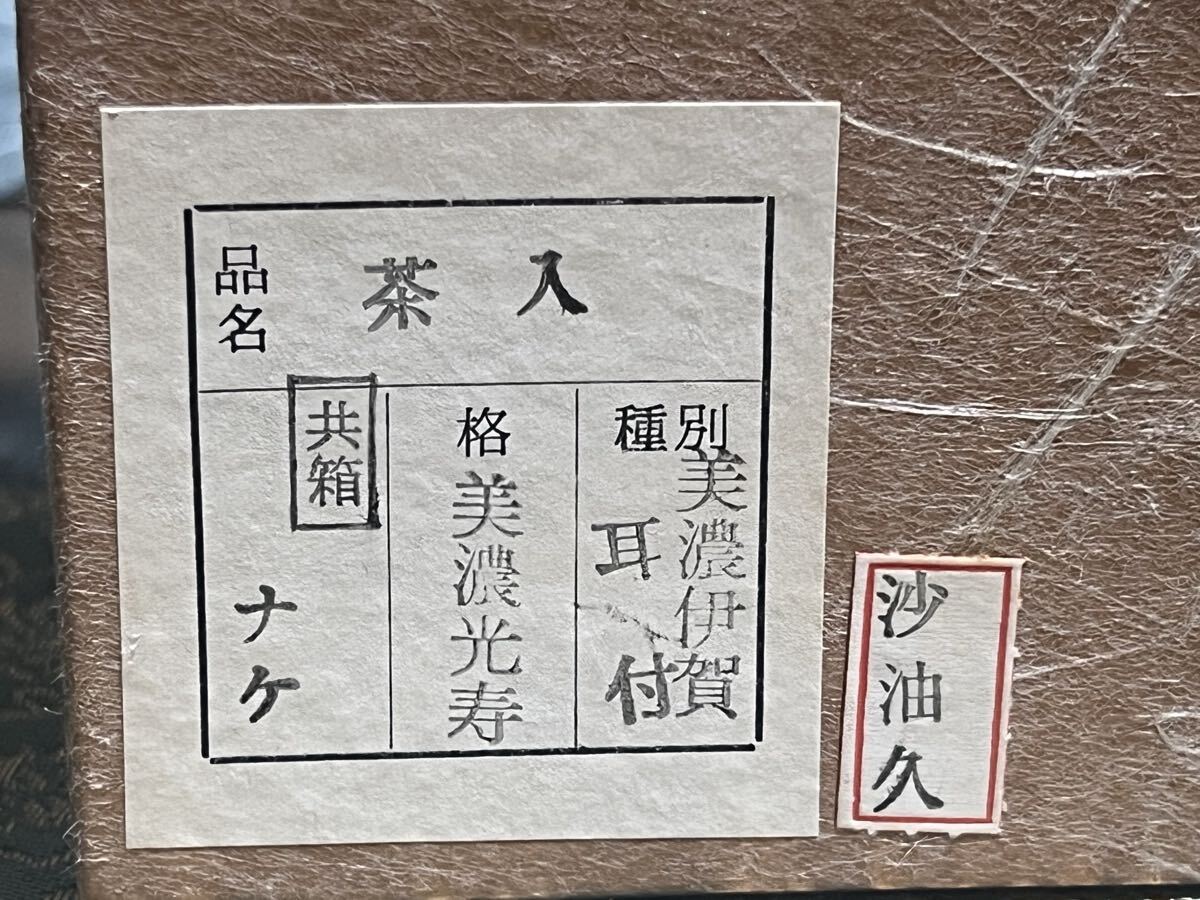 品名
茶入
種別
美濃伊賀
耳付
格
美濃光寿
共箱
ナケ
沙油久